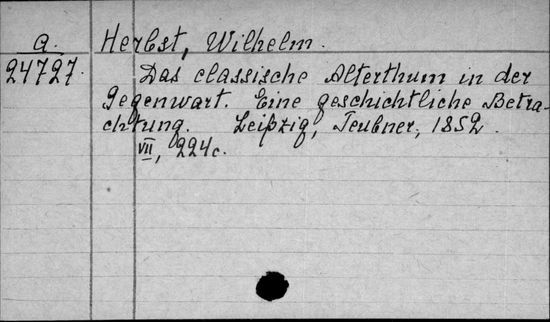 a. Herbst, Wilhelm.
24727. Das classische Alterthum in der
Gegenwart. Eine geschichtliche Betra-
chtung. Leipzig, Teubner, 1852.
VII, 224c.